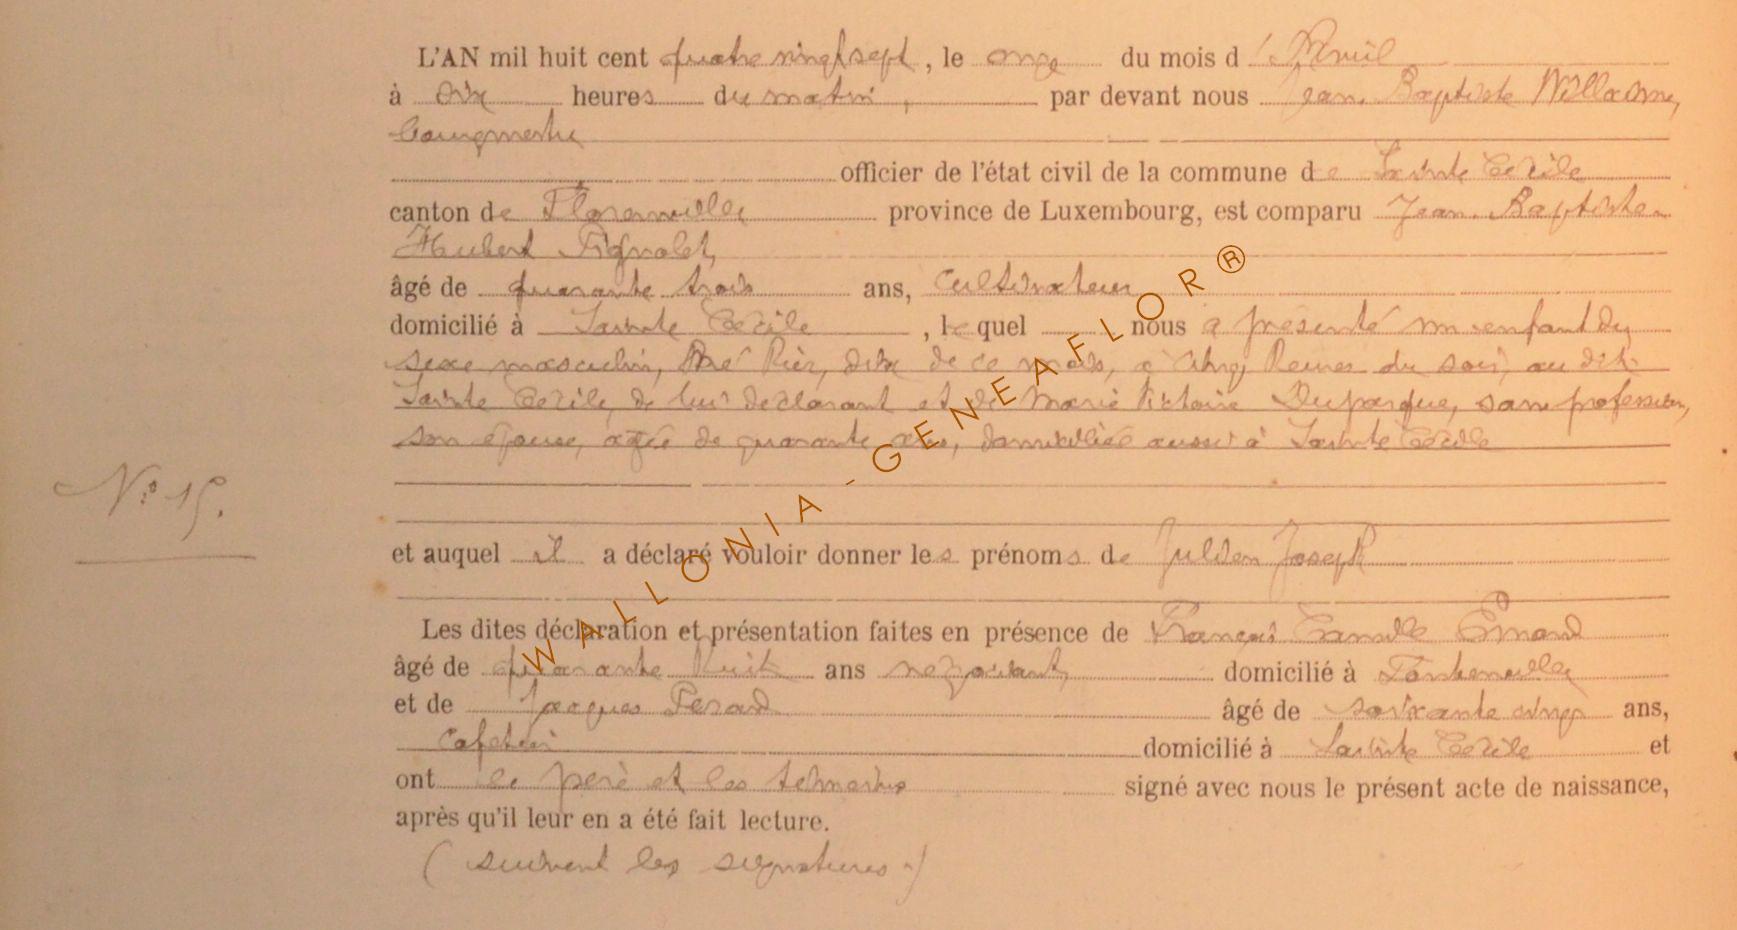 L'AN mil huit cent quatre vingt sept, le onze du mois d'Avril
à dix heures du matin, par devant nous Jean Baptiste Willaime,
bourgmestre
officier de l'état civil de la commune de Sainte Cécile
canton de Florenville province de Luxembourg, est comparu Jean Baptiste
Hubert Pignolet,
âgé de quarante trois ans, cultivateur
domicilié à Sainte Cécile, lequel nous a présenté un enfant du
sexe masculin, né hier, dix de ce mois, à cinq heures du soir, au dit
Sainte Cécile, de lui déclarant et de Marie Victoire Duparque, sans profession,
son épouse, agée de quarante ans, domiciliée aussi à Sainte Cécile
N° 15.
et auquel il a déclaré vouloir donner les prénoms de Julien Joseph
Les dites déclaration et présentation faites en présence de François Camille
âgé de quarante huit ans négociant, domicilié à
et de Jacques âgé de soixante cinq ans,
domicilié à Sainte Cécile et
ont le père et les témoins signé avec nous le présent acte de naissance,
après qu'il leur en a été fait lecture.
(suivent les signatures.)
WALLONIA-GENEAFLOR®